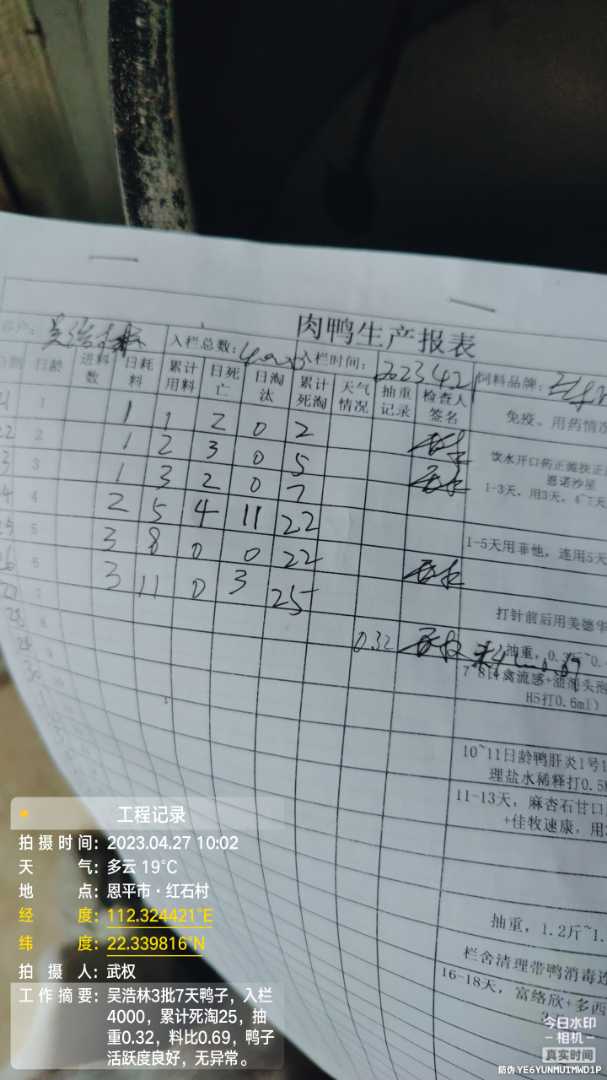 肉鸭生产报表
吴浩林 入栏总数:4000 入栏时间:2023 4 21 饲料品牌:
日龄 进料数 日耗料 累计用料 日死亡 日淘汰 累计死淘 天气情况 抽重记录 检查人签名 免疫、用药情况
1 1 1 2 0 2
22 2 1 2 3 0 5 武权 饮水开口药正菌扶正
恩诺沙星
3 3 1 3 2 0 7 武权 1-3天，用3天，4~7天
4 2 5 4 11 22
25 5 3 8 0 0 22 1-5天用非他，连用5天
26 6 3 11 0 3 25 武权
27 7 打针前后用美德华
28 8 0.32 武权 抽重，0. 料 0.69
29 9 禽流感+
H5打0.6ml)
30
10~11日龄鸭肝炎1号
理盐水稀释打0.5
11-13天，麻杏石甘口
+佳牧速康，用3
抽重，1.2斤~1.
栏舍清理带鸭消毒
16-18天，富络欣+多西
工程记录
拍摄时间：2023.04.27 10:02
天 气：多云 19℃
地 点：恩平市·红石村
经 度：112.324421°E
纬 度：22.339816°N
拍 摄 人：武权
工作摘要：吴浩林3批7天鸭子，入栏
4000，累计死淘25，抽
重0.32，料比0.69，鸭子
活跃度良好，无异常。
今日水印
-相机-
真实时间
防伪 YE6YUNMUIMWD1P